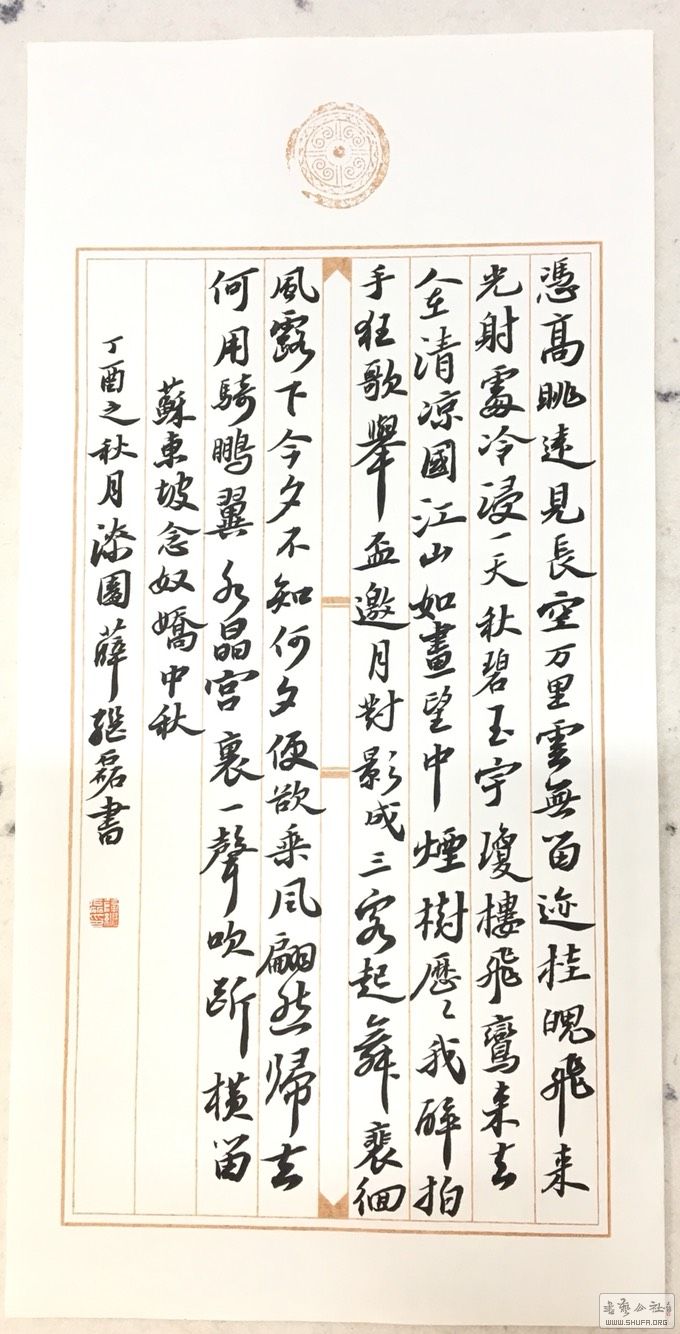 憑高眺遠見長空万里雲無留迹桂魄飛来
光射處冷浸一天秋碧玉宇瓊樓飛鸞来去
人在清凉國江山如畫望中煙樹歷〻我醉拍
手狂歌舉盃邀月對影成三客起舞裵徊
風露下今夕不知何夕便欲乘風翩然歸去
何用騎鵬翼水晶宮裏一聲吹斷横笛
蘇東坡念奴嬌中秋
丁酉之秋月漆園薛継磊書
書藝公社
WWW.SHUFA.ORG